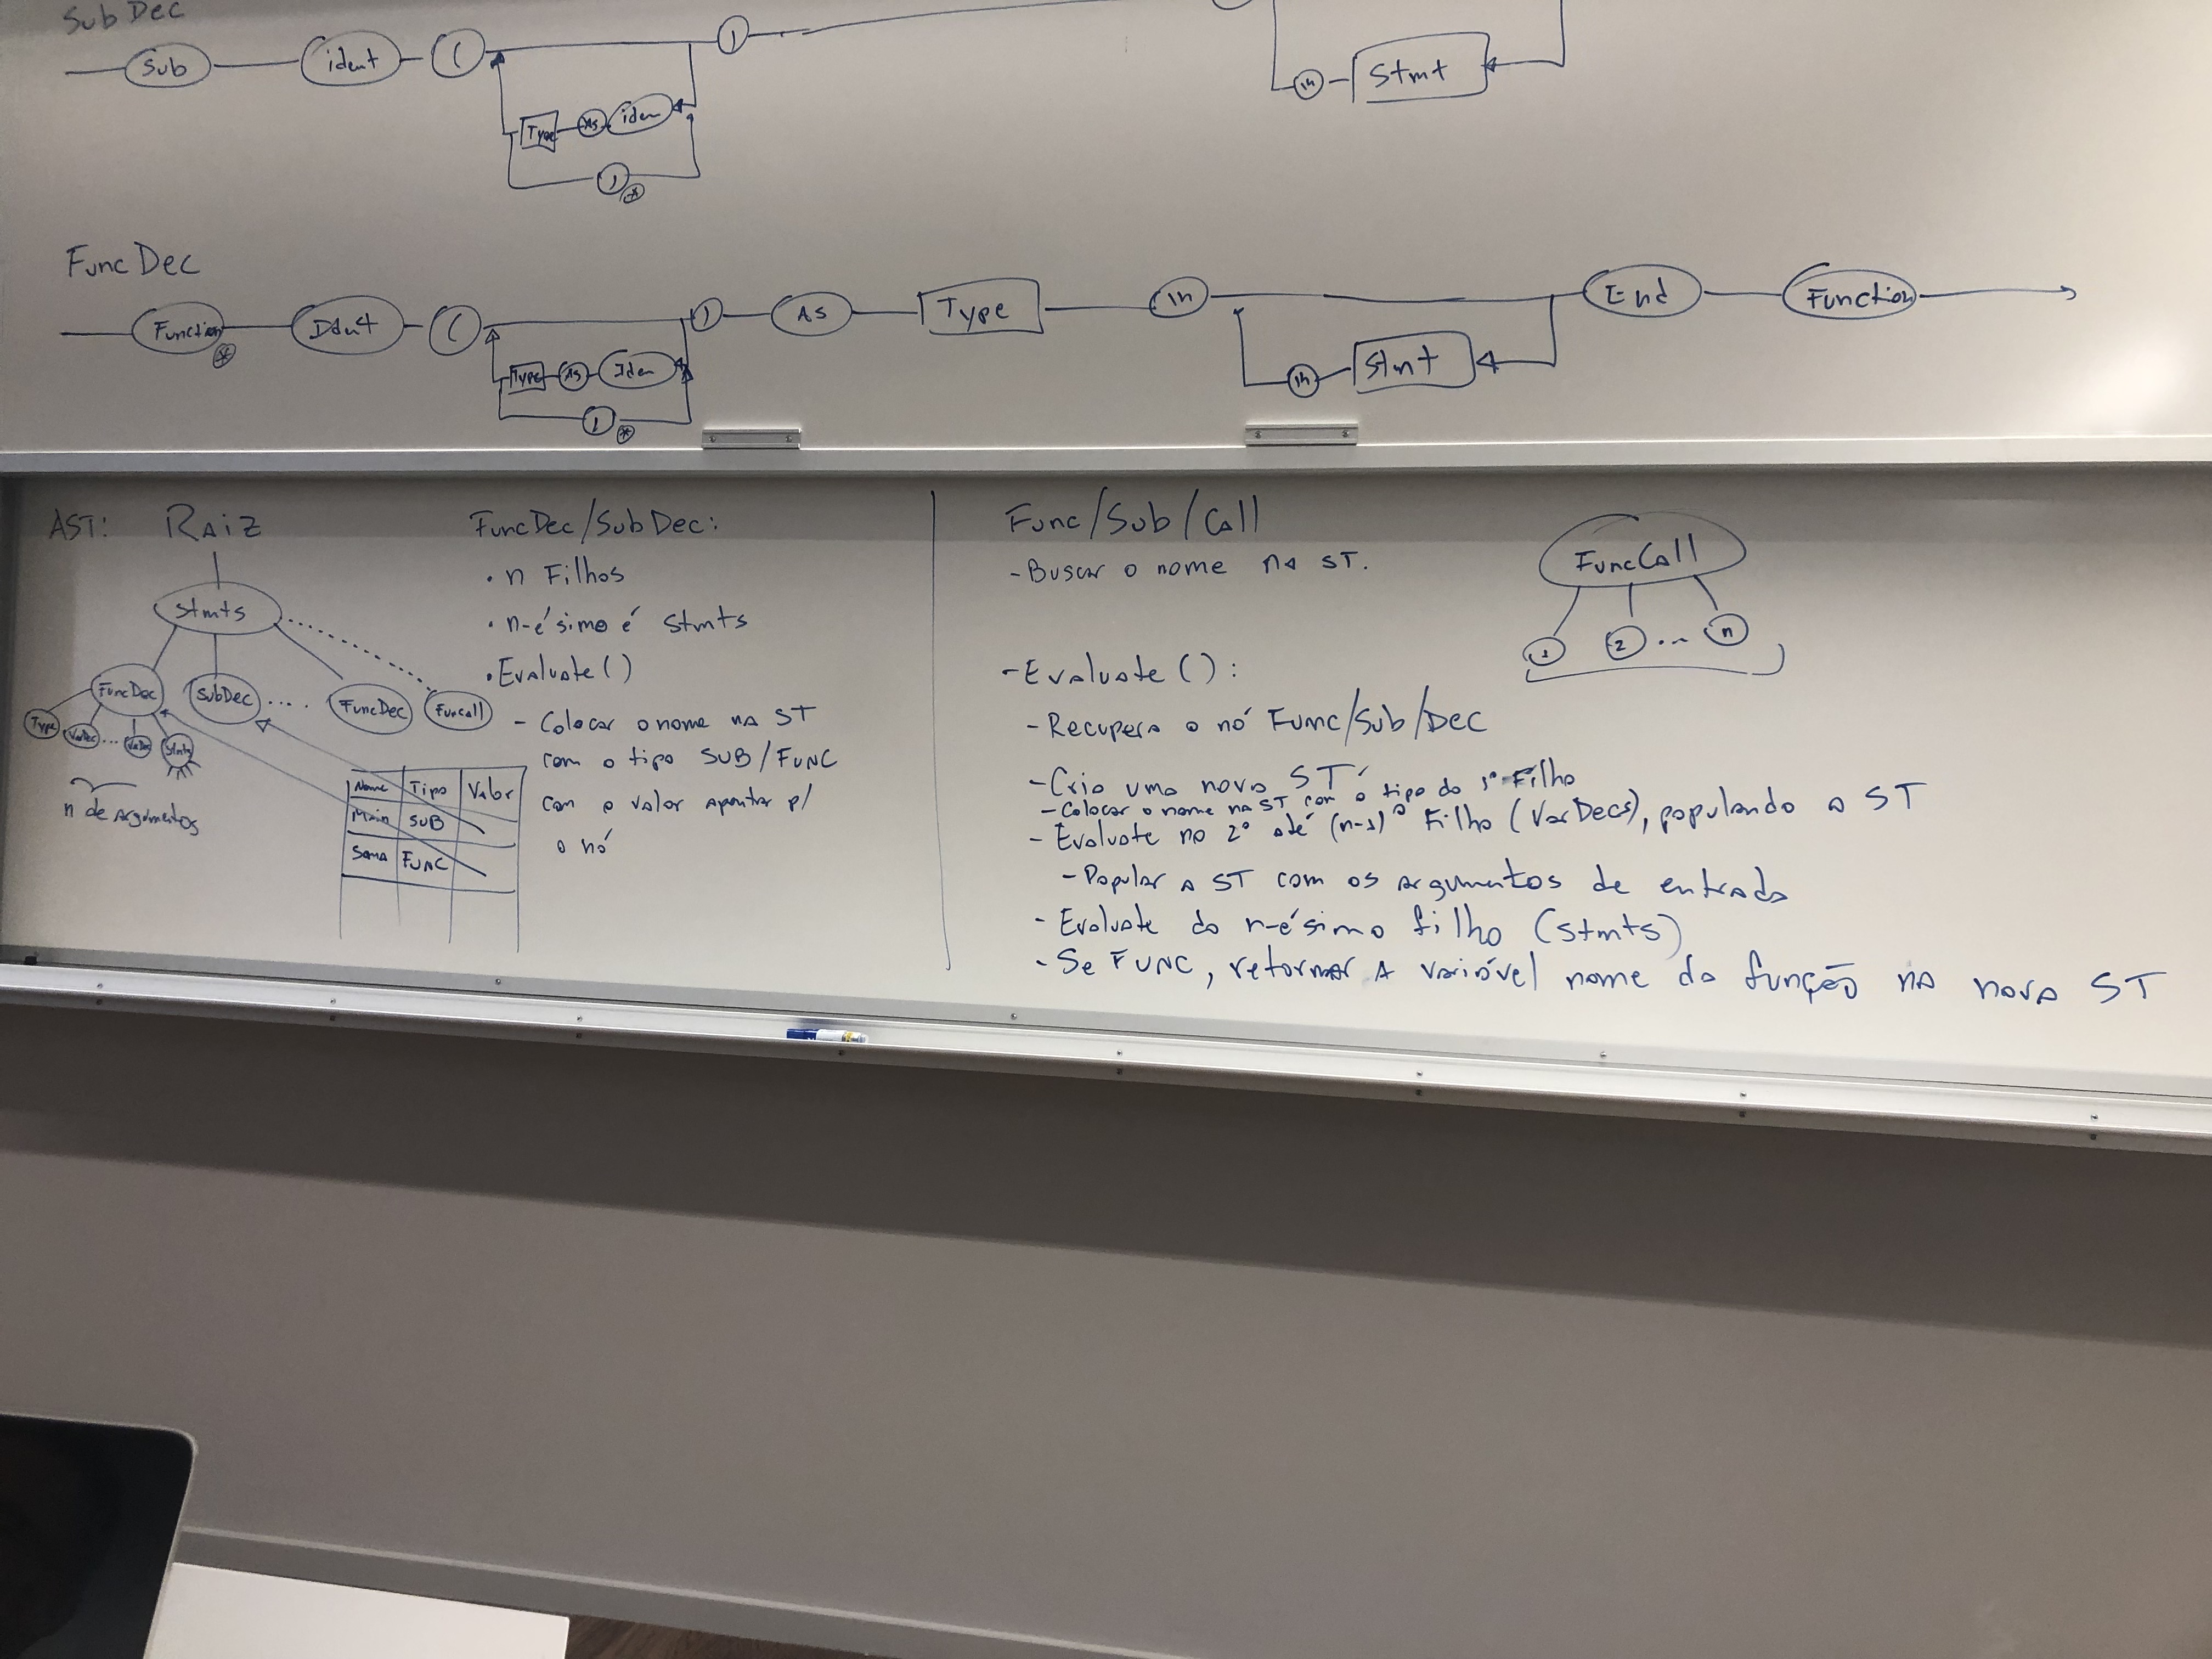 Sub Dec
Sub ident ( )
Type As iden
,
*
\n Stmt
Func Dec
Function Ident ( ) As Type \n End Function
*
Type As Iden
,
*
\n Stmt
AST: Raiz
Stmts
FuncDec SubDec .... FuncDec Funcall
Type VarDec ... VarDec Stmts
n de argumentos
Nome Tipo Valor
Main SUB
Soma FUNC
FuncDec/SubDec:
• n Filhos
• n-ésimo é Stmts
• Evaluate()
- Colocar o nome na ST
com o tipo SUB/FUNC
com o valor apontar p/
o nó
Func/Sub/Call
- Buscar o nome na ST.
- Evaluate():
- Recupera o nó Func/Sub/Dec
- Cria uma nova ST
- Colocar o nome na ST com o tipo do 1º Filho
- Evaluate no 2º até (n-1)º Filho (VarDecs), populando a ST
- Popular a ST com os argumentos de entrada
- Evaluate do n-ésimo filho (Stmts)
- Se FUNC, retornar a variável nome da função na nova ST
FuncCall
1 2 ... n